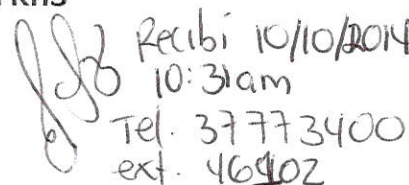 Recibi 10/10/2014
10:31am
Tel. 37773400
ext. 46402